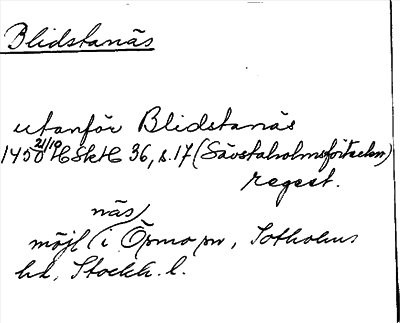 Blidstanäs
utanför Blidstanäs
1450 21/10 HSkH 36, s. 17 (Sävstaholmsförteckn)
regest.
näs
möjl i Ösmo sn, Sotholms
hd, Stockh. l.